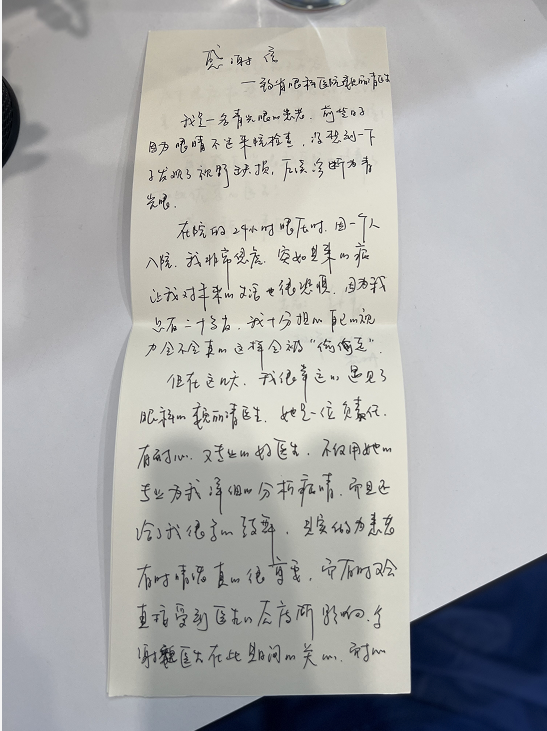 感谢信
——致省眼科医院魏丽清医生
我是一名青光眼的患者，前些时
因为眼睛不适来院检查，没想到一下
子发现了视野缺损，后误诊断为青
光眼。
在院的24小时眼压时，因一个人
入院，我非常焦虑，突如其来的病
让我对未来的生活也很悲惧，因为我
只有二十多岁，我十分担心自己的视
力会不会真的这样会被“偷偷走”。
但在这几天，我很幸运的遇见了
眼科的魏丽清医生，她是一位负责任、
有耐心、又专业的好医生，不仅用她的
专业为我详细的分析病情，而且还
给了我很多的鼓舞，其实做为患者
有时情绪真的很重要，而有时又会
直接受到医生的态度所影响。多
谢魏医生在此期间的关心、耐心